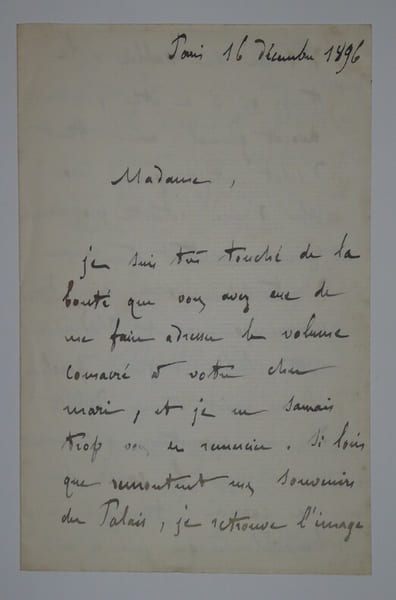 Paris 16 décembre 1896
Madame,
je suis très touché de la
bonté que vous avez eue de
me faire adresser le volume
consacré à votre cher
mari, et je ne saurais
trop vous en remercier. Si loin
que remontent mes souvenirs
du Palais, je retrouve l'image